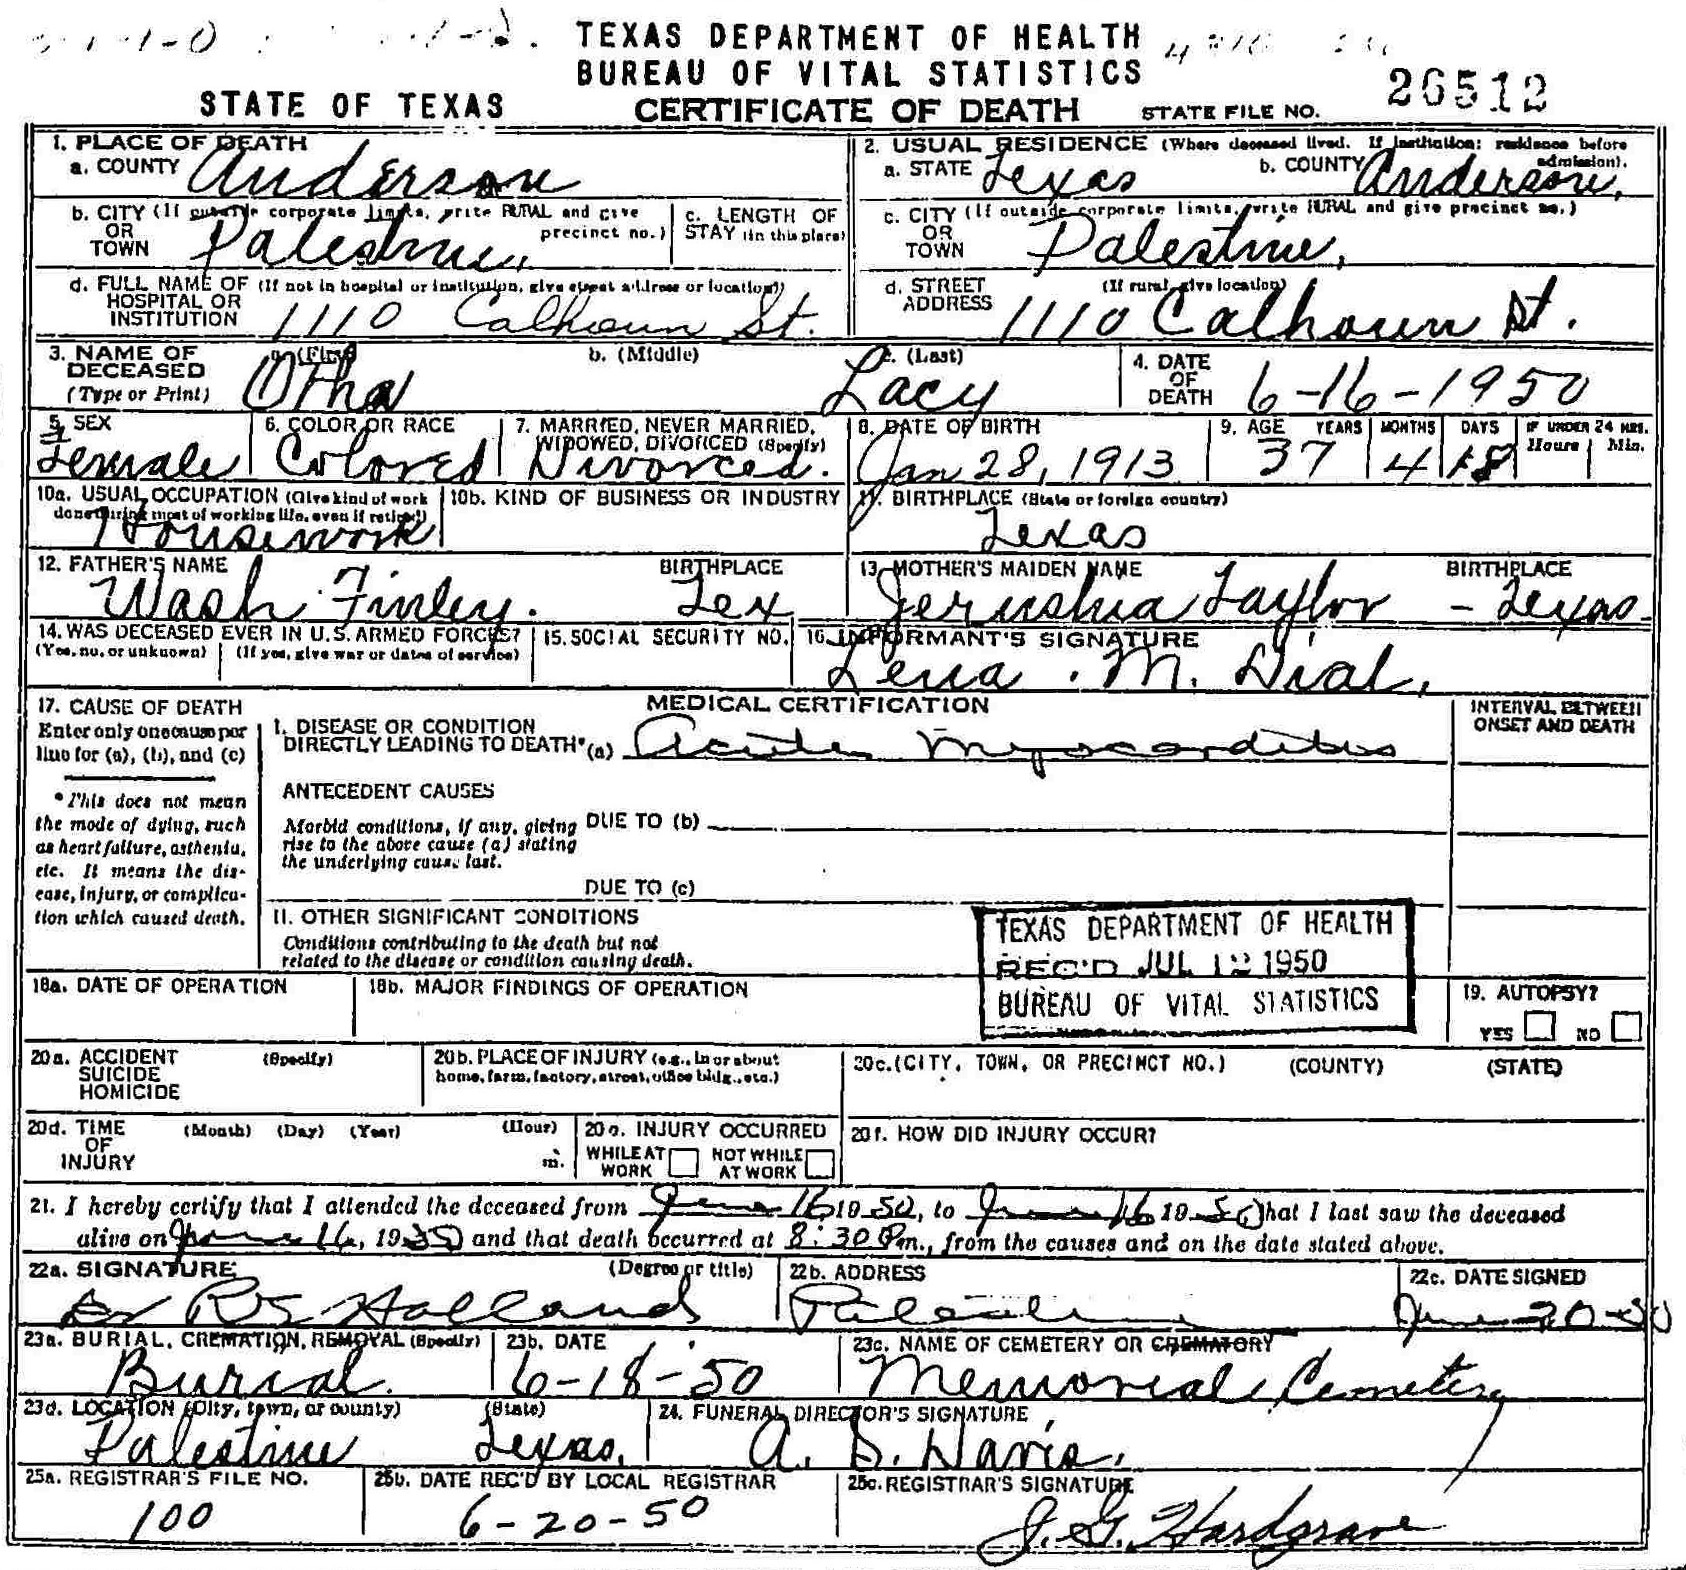 TEXAS DEPARTMENT OF HEALTH
BUREAU OF VITAL STATISTICS
STATE OF TEXAS CERTIFICATE OF DEATH STATE FILE NO. 26512
1. PLACE OF DEATH
a. COUNTY Anderson
2. USUAL RESIDENCE (Where deceased lived. If institution: residence before admission).
a. STATE Texas b. COUNTY Anderson,
b. CITY (If outside corporate limits, write RURAL and give precinct no.)
OR
TOWN Palestine,
c. LENGTH OF
STAY (in this place)
c. CITY (If outside corporate limits, write RURAL and give precinct no.)
OR
TOWN Palestine,
d. FULL NAME OF (If not in hospital or institution, give street address or location)
HOSPITAL OR
INSTITUTION 1110 Calhoun St.
d. STREET (If rural, give location)
ADDRESS 1110 Calhoun St.
3. NAME OF
DECEASED
(Type or Print)
a. (First) Otha
b. (Middle)
c. (Last) Lacy
4. DATE
OF
DEATH 6-16-1950
5. SEX
Female
6. COLOR OR RACE
Colored
7. MARRIED, NEVER MARRIED,
WIDOWED, DIVORCED (Specify)
Divorced.
8. DATE OF BIRTH
Jan 28, 1913
9. AGE YEARS MONTHS DAYS IF UNDER 24 HRS.
Hours Min.
37 4 18
10a. USUAL OCCUPATION (Give kind of work
done during most of working life, even if retired)
Housework
10b. KIND OF BUSINESS OR INDUSTRY
11. BIRTHPLACE (State or foreign country)
Texas
12. FATHER'S NAME BIRTHPLACE
Wash Finley. Tex
13. MOTHER'S MAIDEN NAME BIRTHPLACE
Jerushua Taylor - Texas
14. WAS DECEASED EVER IN U.S. ARMED FORCES?
(Yes, no, or unknown) (If yes, give war or dates of service)
15. SOCIAL SECURITY NO.
16. INFORMANT'S SIGNATURE
Lena . M. Dial,
17. CAUSE OF DEATH
Enter only one cause per
line for (a), (b), and (c)
*This does not mean
the mode of dying, such
as heart failure, asthenia,
etc. It means the dis-
ease, injury, or complica-
tion which caused death.
MEDICAL CERTIFICATION
INTERVAL BETWEEN
ONSET AND DEATH
I. DISEASE OR CONDITION
DIRECTLY LEADING TO DEATH* (a) Acute myocarditis
ANTECEDENT CAUSES
Morbid conditions, if any, giving
rise to the above cause (a) stating
the underlying cause last.
DUE TO (b)
DUE TO (c)
II. OTHER SIGNIFICANT CONDITIONS
Conditions contributing to the death but not
related to the disease or condition causing death.
TEXAS DEPARTMENT OF HEALTH
REC'D JUL 12 1950
BUREAU OF VITAL STATISTICS
18a. DATE OF OPERATION
18b. MAJOR FINDINGS OF OPERATION
19. AUTOPSY?
YES NO
20a. ACCIDENT (Specify)
SUICIDE
HOMICIDE
20b. PLACE OF INJURY (e.g., in or about
home, farm, factory, street, office bldg., etc.)
20c. (CITY, TOWN, OR PRECINCT NO.) (COUNTY) (STATE)
20d. TIME (Month) (Day) (Year) (Hour)
OF
INJURY m.
20e. INJURY OCCURRED
WHILE AT WORK NOT WHILE AT WORK
20f. HOW DID INJURY OCCUR?
21. I hereby certify that I attended the deceased from June 16 1950, to June 16 1950, that I last saw the deceased
alive on June 16, 1950 and that death occurred at 8:30 Pm., from the causes and on the date stated above.
22a. SIGNATURE (Degree or title)
Dr R S Holland
22b. ADDRESS
Palestine
22c. DATE SIGNED
June-20-50
23a. BURIAL, CREMATION, REMOVAL (Specify)
Burial.
23b. DATE
6-18-50
23c. NAME OF CEMETERY OR CREMATORY
Memorial Cemetery
23d. LOCATION (City, town, or county) (State)
Palestine Texas.
24. FUNERAL DIRECTOR'S SIGNATURE
A. D. Davis.
25a. REGISTRAR'S FILE NO.
100
25b. DATE REC'D BY LOCAL REGISTRAR
6-20-50
25c. REGISTRAR'S SIGNATURE
J. G. Hardgrave